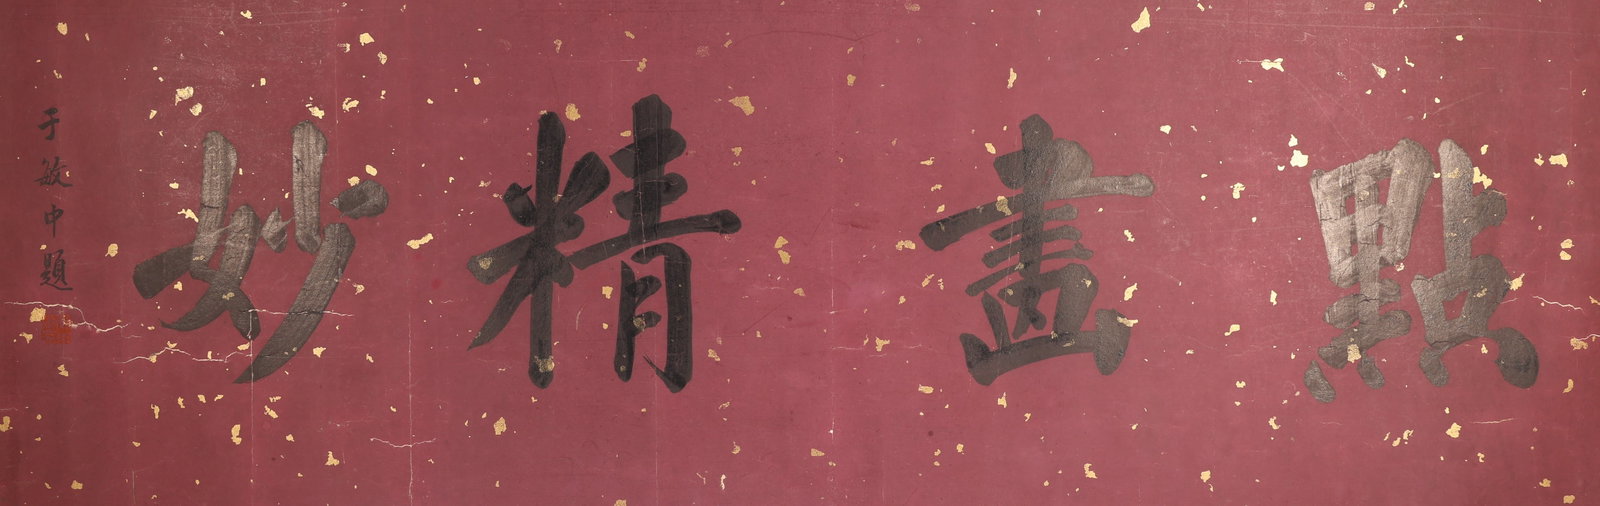 點畵精妙
于敏中題